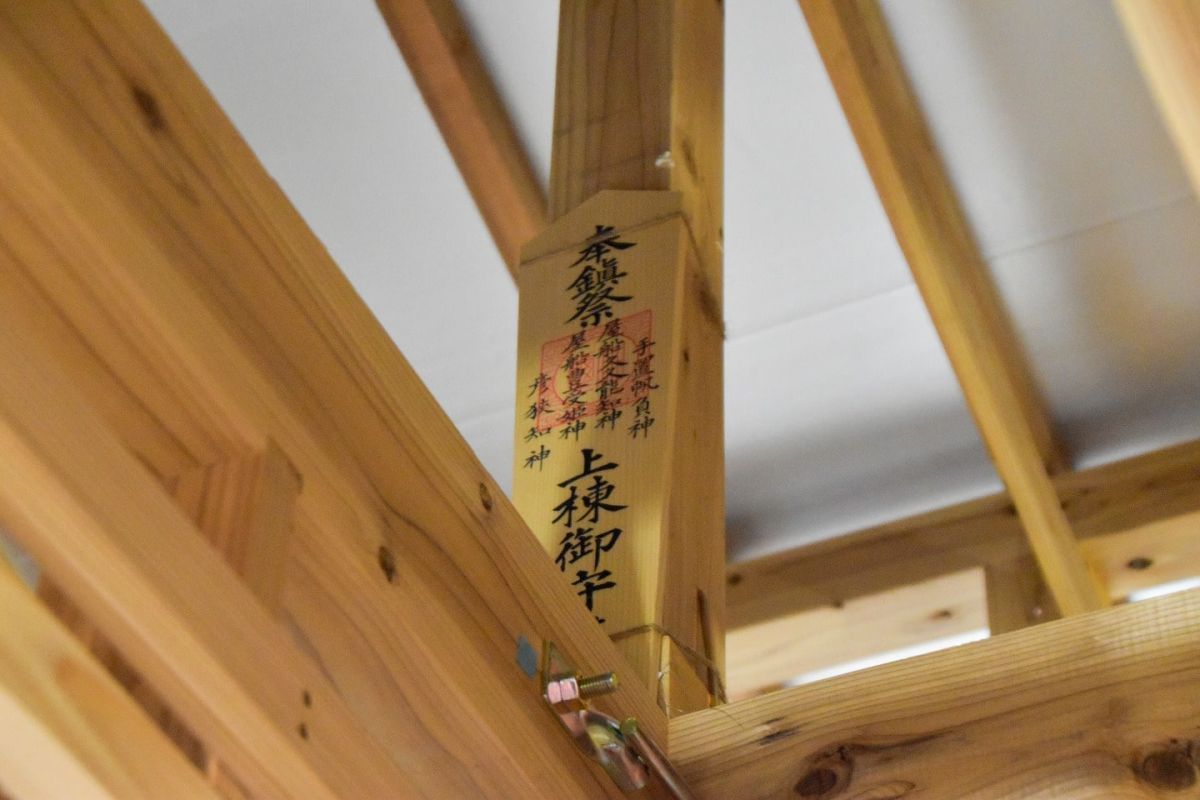 奉鎭祭
手置帆負神
屋船久久能知神
屋船豊受姫神
彦狭知神
上棟御守